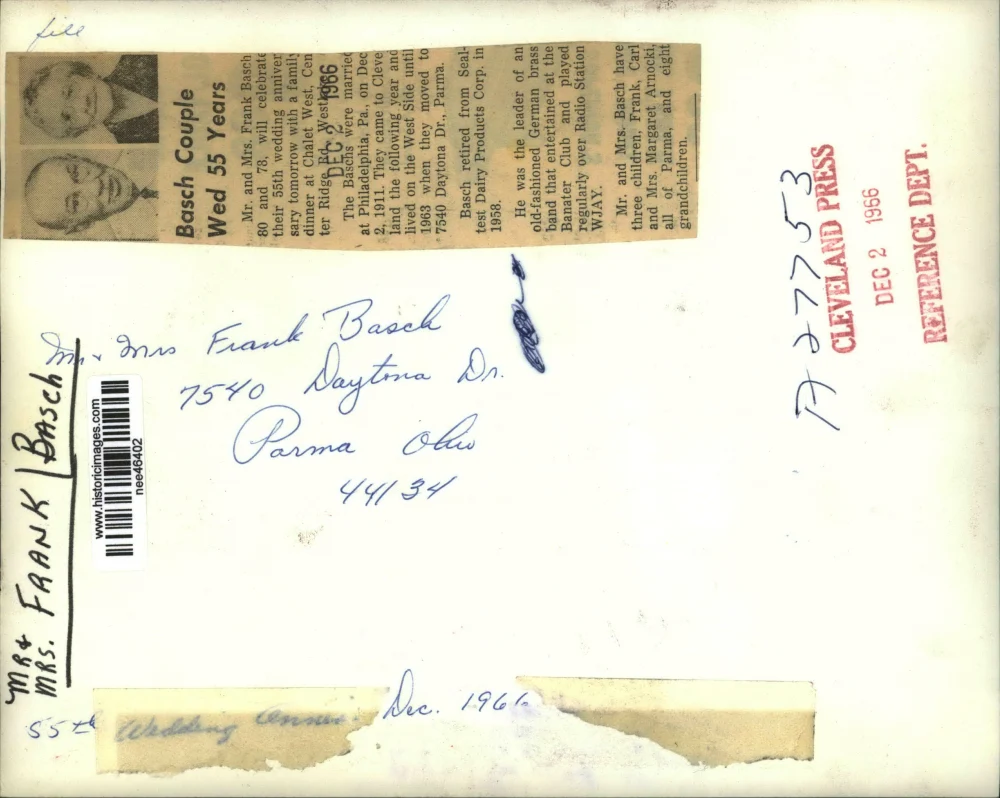 file
Basch Couple
Wed 55 Years
Mr. and Mrs. Frank Basch
80 and 78, will celebrate
their 55th wedding anniver
sary tomorrow with a family
dinner at Chalet West, Cen
ter Ridge Rd., Westlake.
DEC 2 1966
The Baschs were married
at Philadelphia, Pa., on Dec
2, 1911. They came to Cleve
land the following year and
lived on the West Side until
1963 when they moved to
7540 Daytona Dr., Parma.
Basch retired from Seal-
test Dairy Products Corp. in
1958.
He was the leader of an
old-fashioned German brass
band that entertained at the
Banater Club and played
regularly over Radio Station
WJAY.
Mr. and Mrs. Basch have
three children, Frank, Carl
and Mrs. Margaret Arnocki,
all of Parma, and eight
grandchildren.
Mr & Mrs Frank Basch
7540 Daytona Dr.
Parma Ohio
44134
A277753
CLEVELAND PRESS
DEC 2 1966
REFERENCE DEPT.
MR &
MRS. FRANK BASCH
www.historicimages.com
nee46402
55th Wedding Anniv. Dec. 1966